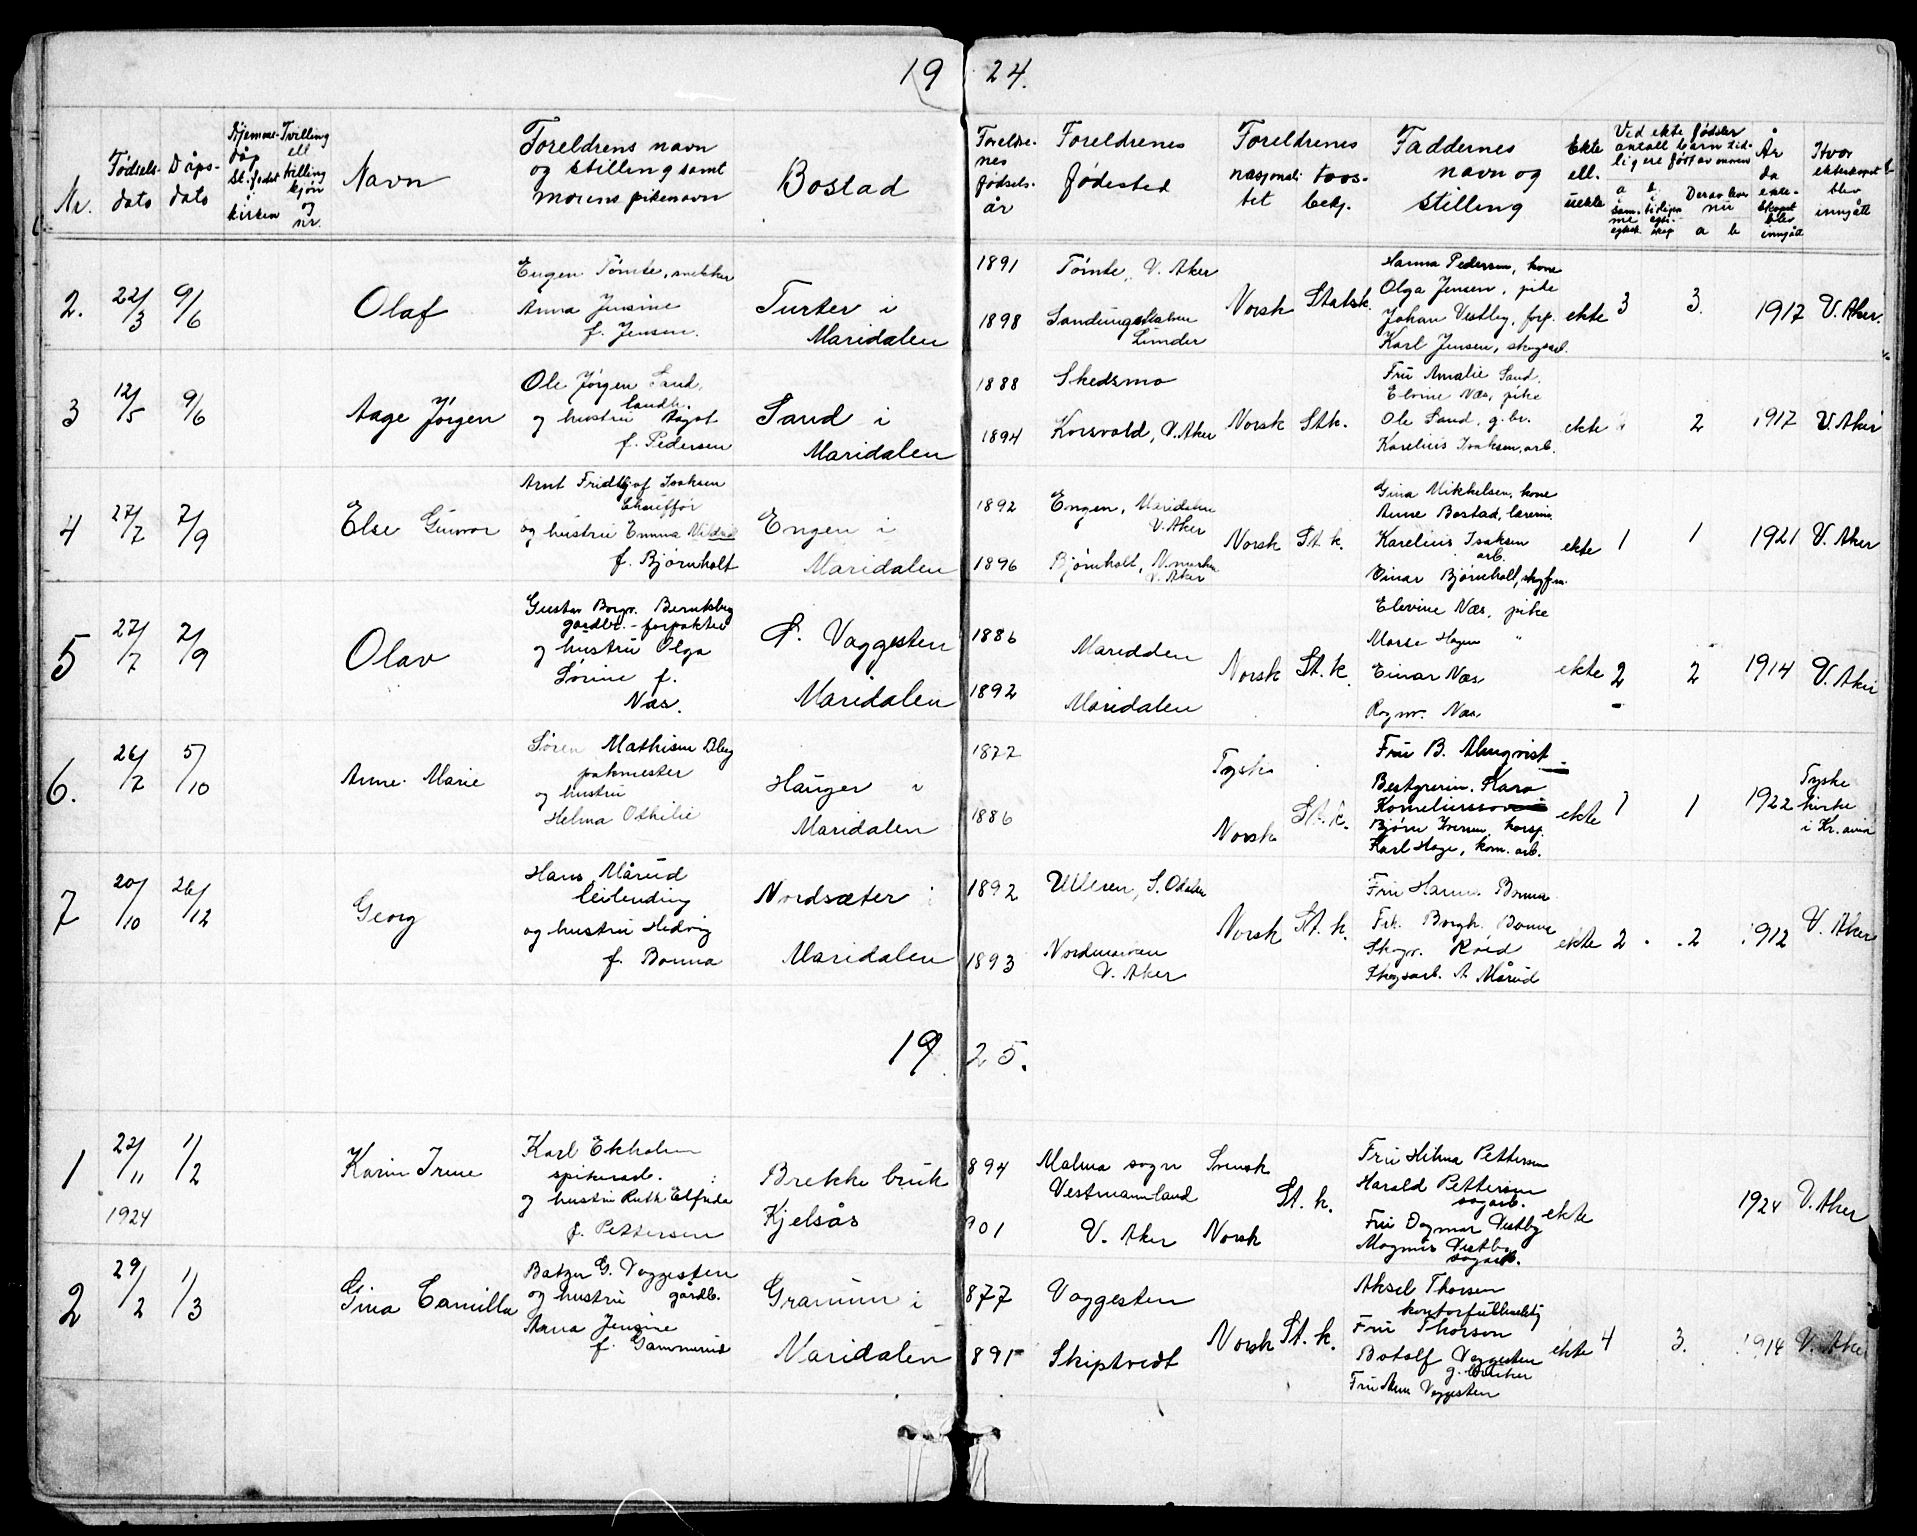 19 24.
Nr. Fødsels-dato Dåps-dato Hjemme-dåp st.festet i kirken Tvilling ell trilling kjøn og nr. Navn Foreldrens navn og stilling samt morens pikenavn Bostad Foreldre-nes fødsels-år Foreldrenes fødested Foreldrenes nasjonali-tet tros-bekj. Faddernes navn og stilling Ekte ell. uekte Ved ekte fødsler antall barn tid-ligere født av moren a samme ektesk. b. tidligere ekte-skap Derav lever nu a b År da ekte-skapet blev inngått Hvor ekteskapet blev inngått
2. 22/3 9/6 Olaf
Eugen Tømte, snekker
Anna Jensine
f. Jensen.
Turter i
Maridalen
1891 Tømte, V. Aker
1898 Sandungskalven
Lunder
Norsk Statsk.
Hanna Pedersen, kone
Olga Jensen, pike
Johan Vestby, forp.
Karl Jensen, skogsarb.
ekte 3 3. 1917 V. Aker.
3 12/5 9/6 Aage Jørgen
Ole Jørgen Sand,
landh.
og hustru Aagot
f. Pedersen
Sand i
Maridalen
1888 Skedsmo
1894 Korsvold, V. Aker
Norsk St.k.
Fru Amalie Sand.
Elvine Næs, pike
Ole Sand, g.br.
Karelius Isaksen, arb.
ekte 2 1917 V. Aker
4 27/7 7/9 Else Gunvor
Arnt Fridtjof Isaksen
Chauffør
og hustru Emma
f. Bjørnholt
Engen i
Maridalen
1892 Engen, Maridalen
V. Aker
1896 Bjørnholt, N.marken
V. Aker
Norsk St. k.
Gina Mikkelsen, kone
Anne Bostad, lærerin.
Karelius Isaksen
arb.
Einar Bjørnholt, skogfm.
ekte 1 1 1921 V. Aker
5 27/7 7/9 Olav
Gustav Borgv. Berntsberg
gardbr. - forpakter
og hustru Olga
Sørine f.
Næs.
S. Vaggesten
Maridalen
1886 Maridalen
1892 Maridalen
Norsk St. k.
Elevine Næs, pike
Hagen "
Einar Næs
Ragnv. Næs
ekte 2 2 1914 V. Aker
6. 26/7 5/10 Anne Marie
Søren Mathisen
pakmester
og hustru
Helma Othilie
Hauger i
Maridalen
1877
1886
Tysk
Norsk
St. k.
Fru B. Almqvist
Bestyrerin. Kara
Korneliussen
Bjørn Iversen, korsp.
Karl Hage, kom. arb.
ekte 1 1 1922 Tyske
kirke
i Kr.ania
7 20/10 26/12 Georg
Hans Mårud
leilending
og hustru Hedvig
f. Bonna
Nordsæter i
Maridalen
1892 Ulleren, S. Odalen
1893 Nordmarken
V. Aker
Norsk St. k.
Fru Hanna Bonna
Frk. Borgh. Bonna
Skogv. Roed
Skogsarb. A. Mårud
ekte 2 2 1912 V. Aker
19 25.
1 22/11 1924 1/2 Karin Irene
Karl Ekholm
spikerarb.
og hustru Ruth Elfrida
f. Pettersen
Brekke bruk
Kjelsås
894 Malma sogn
Vestmannland
901 V. Aker
Svensk
Norsk
St. k.
Fru Helma Pettersen
Harald Pettersen
sagarb.
Fru Dagmar Vestby
Magnus Vestby
sagarb.
ekte 1924 V. Aker
2 29/2 1/3 Gina Camilla
Batzer G. Vaggesten
og hustru gårdb.
Anna Jensine
f. Gammerud
Granum i
Maridalen
877 Vaggesten
891 Skiptvedt
Norsk St. k.
Aksel Thorsen
kontorfullmektig
Fru Thorsen
Botolf Vaggesten
g. bruker
Fru Anna Vaggesten
ekte 4 3. 1914 V. Aker